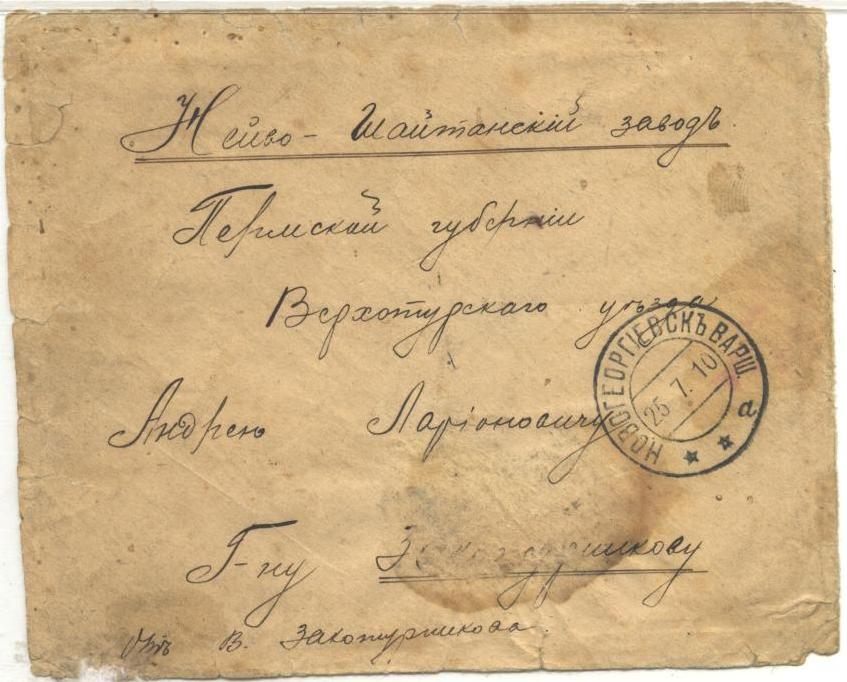 Нейво-Шайтанскій заводъ.
Пермской губерніи
Верхотурскаго уѣзда
Андрею Ларіоновичу
Г-ну Закожурникову
Отъ В. Закожурникова.
НОВОГЕОРГІЕВСКЪ ВАРШ.
25.7.10
а